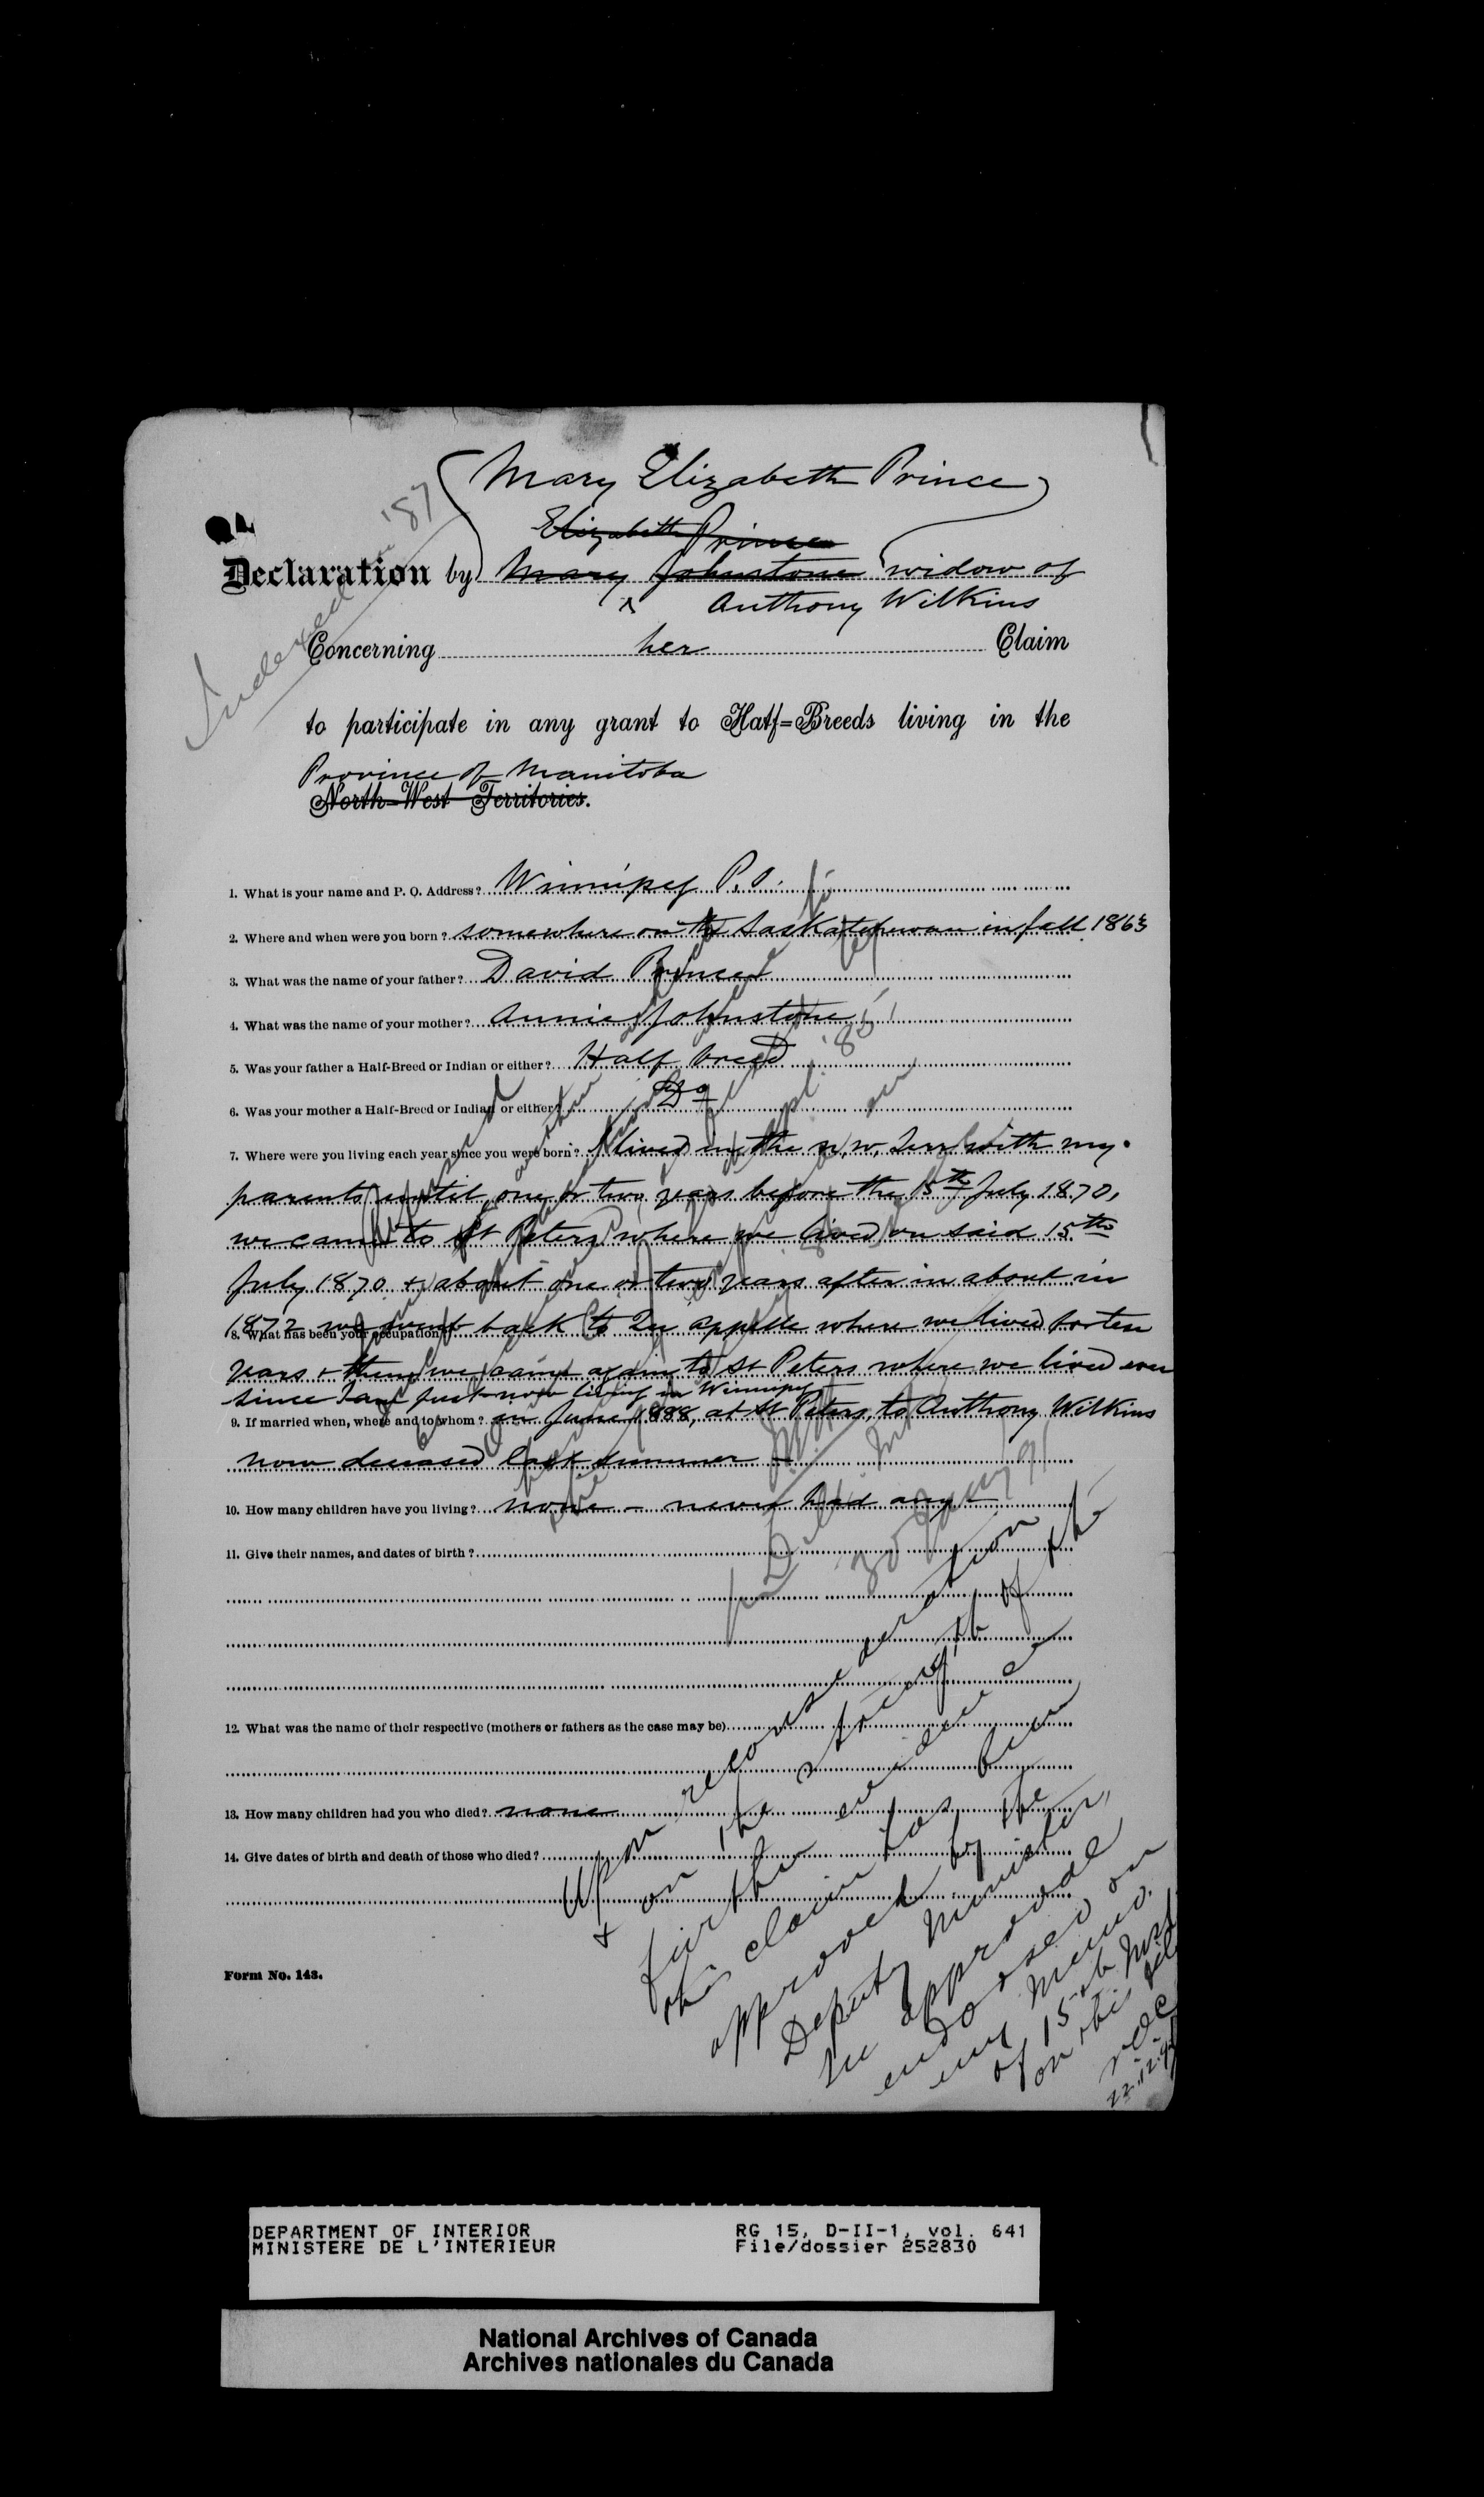 Mary Elizabeth Prince
Indexed '87
Elizabeth Prince
Declaration by Mary Johnstone widow of
Anthony Wilkins
Concerning her Claim
to participate in any grant to Half=Breeds living in the
Province of Manitoba
North-West Territories.
1. What is your name and P. O. Address? Winnipeg P.O.
2. Where and when were you born? somewhere on the Saskatchewan in fall 1863
3. What was the name of your father? David Prince
4. What was the name of your mother? Annie Johnstone
5. Was your father a Half-Breed or Indian or either? Half breed
6. Was your mother a Half-Breed or Indian or either? Do
7. Where were you living each year since you were born? I lived in the N. W. Terr with my
parents until one or two years before the 15th July 1870,
we came to St Peters where we lived on said 15th
July 1870 & about one or two years after in about in
1872 we went back to Qu appelle where we lived for ten
8. What has been your occupation?
years & then we came again to St Peters where we lived ever
since I am just now living in Winnipeg
9. If married when, where and to whom? in June 1888, at St Peters to Anthony Wilkins
now deceased last summer
10. How many children have you living? none - never had any -
11. Give their names, and dates of birth?
12. What was the name of their respective (mothers or fathers as the case may be)
13. How many children had you who died? none
14. Give dates of birth and death of those who died?
Upon reconsideration
& on the strength of the
further evidence
this claim has been
approved by the
Deputy Minister,
see approval
endorsed on
my memo.
of 15th Inst
on this file
Form No. 143.
DEPARTMENT OF INTERIOR
MINISTERE DE L'INTERIEUR
RG 15, D-II-1, vol. 641
File/dossier 252830
National Archives of Canada
Archives nationales du Canada